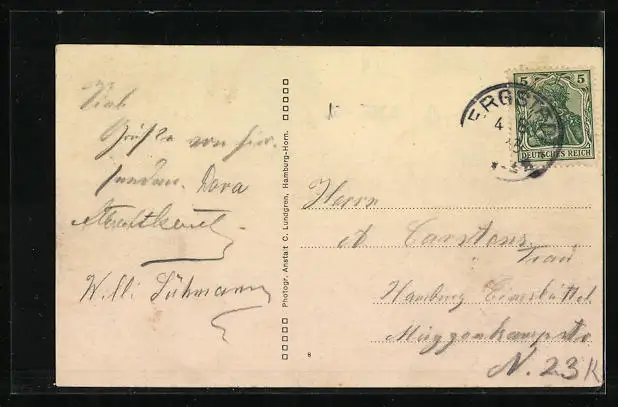 Grüße von hier
senden Dora
Willi Lühmann
Photogr. Anstalt C. Lundgren, Hamburg-Horn.
8
5 5
DEUTSCHES REICH
ERGST
4
Herrn
A Carstens
Frau
Hamburg Eimsbüttel
Müggenkampstr
N. 23